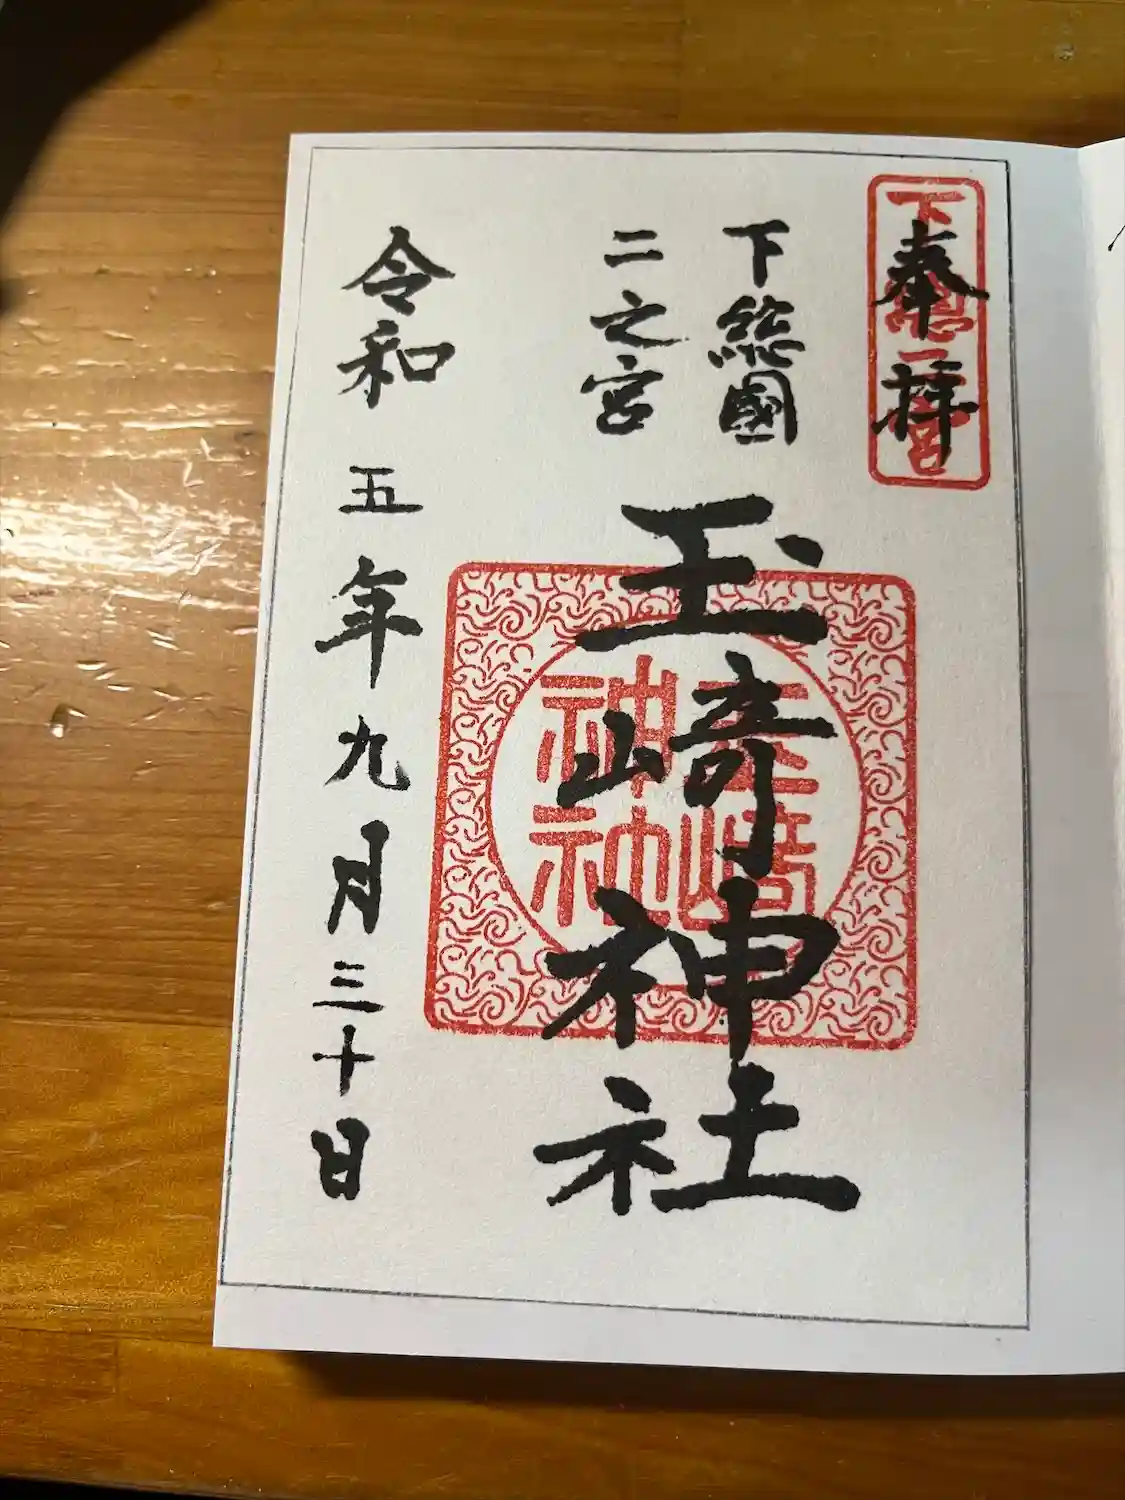 奉拝
下総國
二之宮
玉﨑神社
令和五年九月三十日